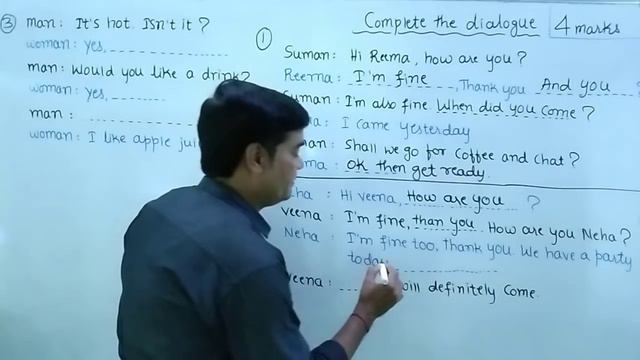 Complete the dialogue 4 marks
③ man: It's hot. Isn't it?
woman: yes, ----------
man: Would you like a drink?
woman: yes, --------
man: ----------
woman: I like apple jui
①
Suman: Hi Reema, how are you?
Reema: I'm fine, Thank you And you ?
Suman: I'm also fine. When did you come?
a: I came yesterday
man: Shall we go for Coffee and chat?
ma: OK then get ready.
ha: Hi veena, How are you ?
veena: I'm fine, than you. How are you Neha?
Neha: I'm fine too, Thank you. We have a party
today ----------
veena: ---- will definitely come.